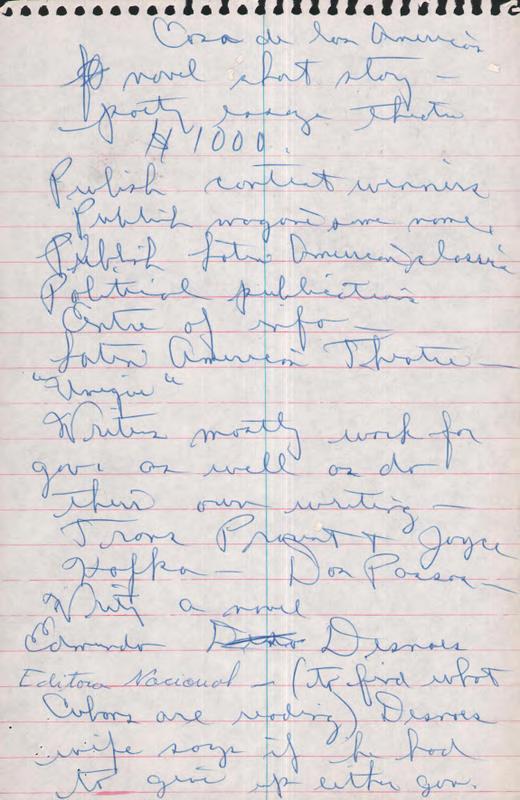 Casa de los Americas
novel short story –
poetry essay theatre
$ 1000.
Publish contest winners
Publish magazine same name.
Publish Latin American classics
Political publications
Centre of info –
Latin American Theatre –
"Unique"
Writers mostly work for
govt as well as do
their own writing –
Trans Proust + Joyce
Kafka – Dos Passos –
Write a novel
Edmundo Desnoes
Editora Nacional – (to find what
Cubans are reading) Desnoes
wife says if he had
to give up either gov.